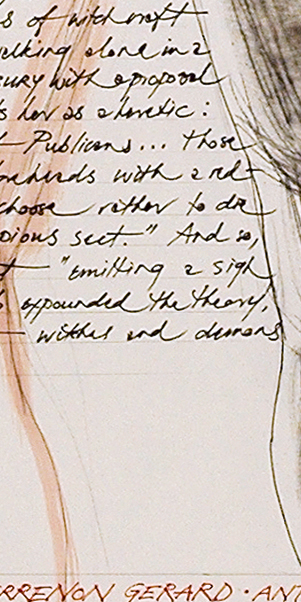 s of witchcraft
walking alone in a
cury with a proposal
s her as a heretic:
Publicans... those
foreheads with a red-
choose rather to die
pious sect." And so,
"emitting a sigh
expounded the theory,
witches and demons
ERRENON GERARD · ANT